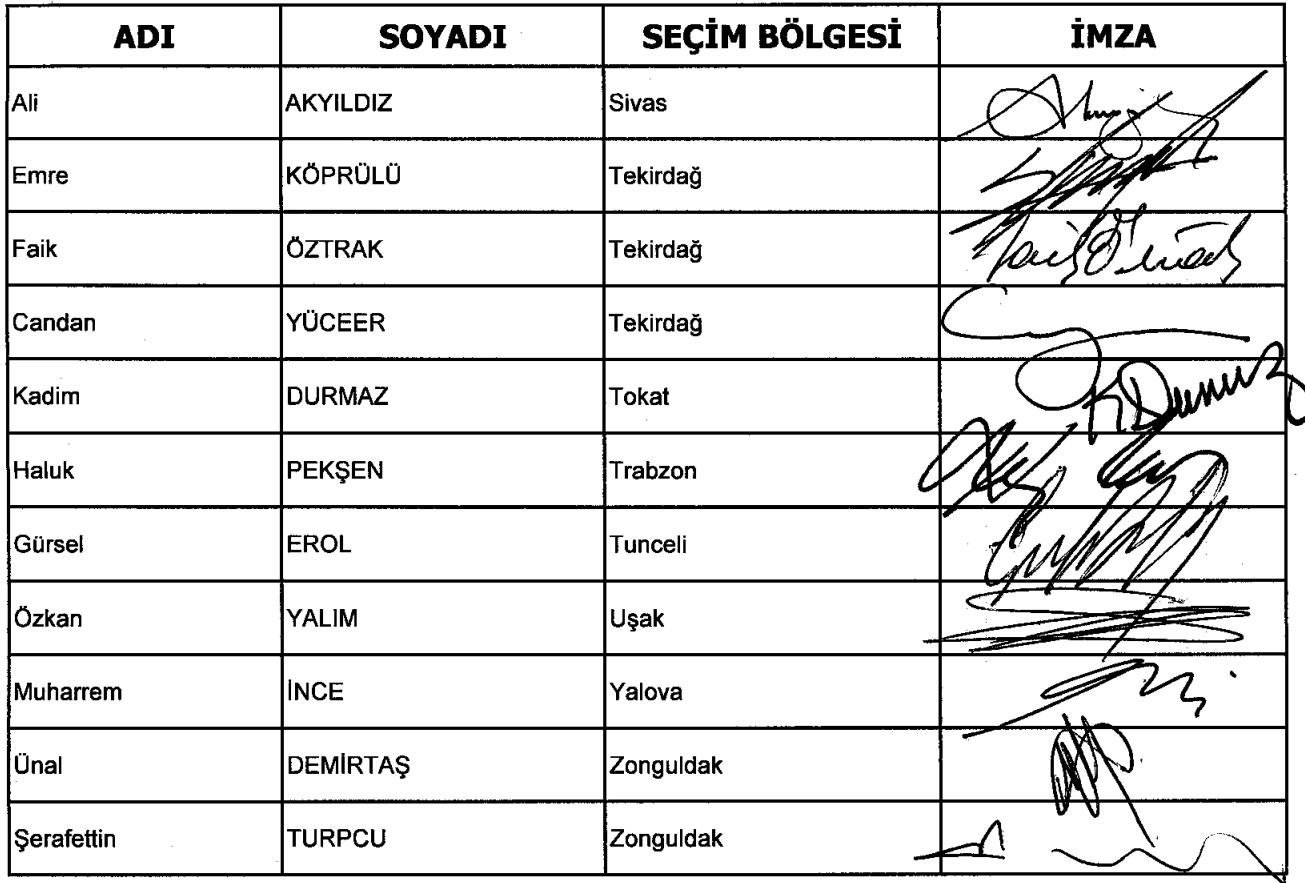 ADI SOYADI SEÇİM BÖLGESİ İMZA
Ali AKYILDIZ Sivas
Emre KÖPRÜLÜ Tekirdağ
Faik ÖZTRAK Tekirdağ
Candan YÜCEER Tekirdağ
Kadim DURMAZ Tokat K Durmaz
Haluk PEKŞEN Trabzon
Gürsel EROL Tunceli
Özkan YALIM Uşak
Muharrem İNCE Yalova
Ünal DEMİRTAŞ Zonguldak
Şerafettin TURPCU Zonguldak